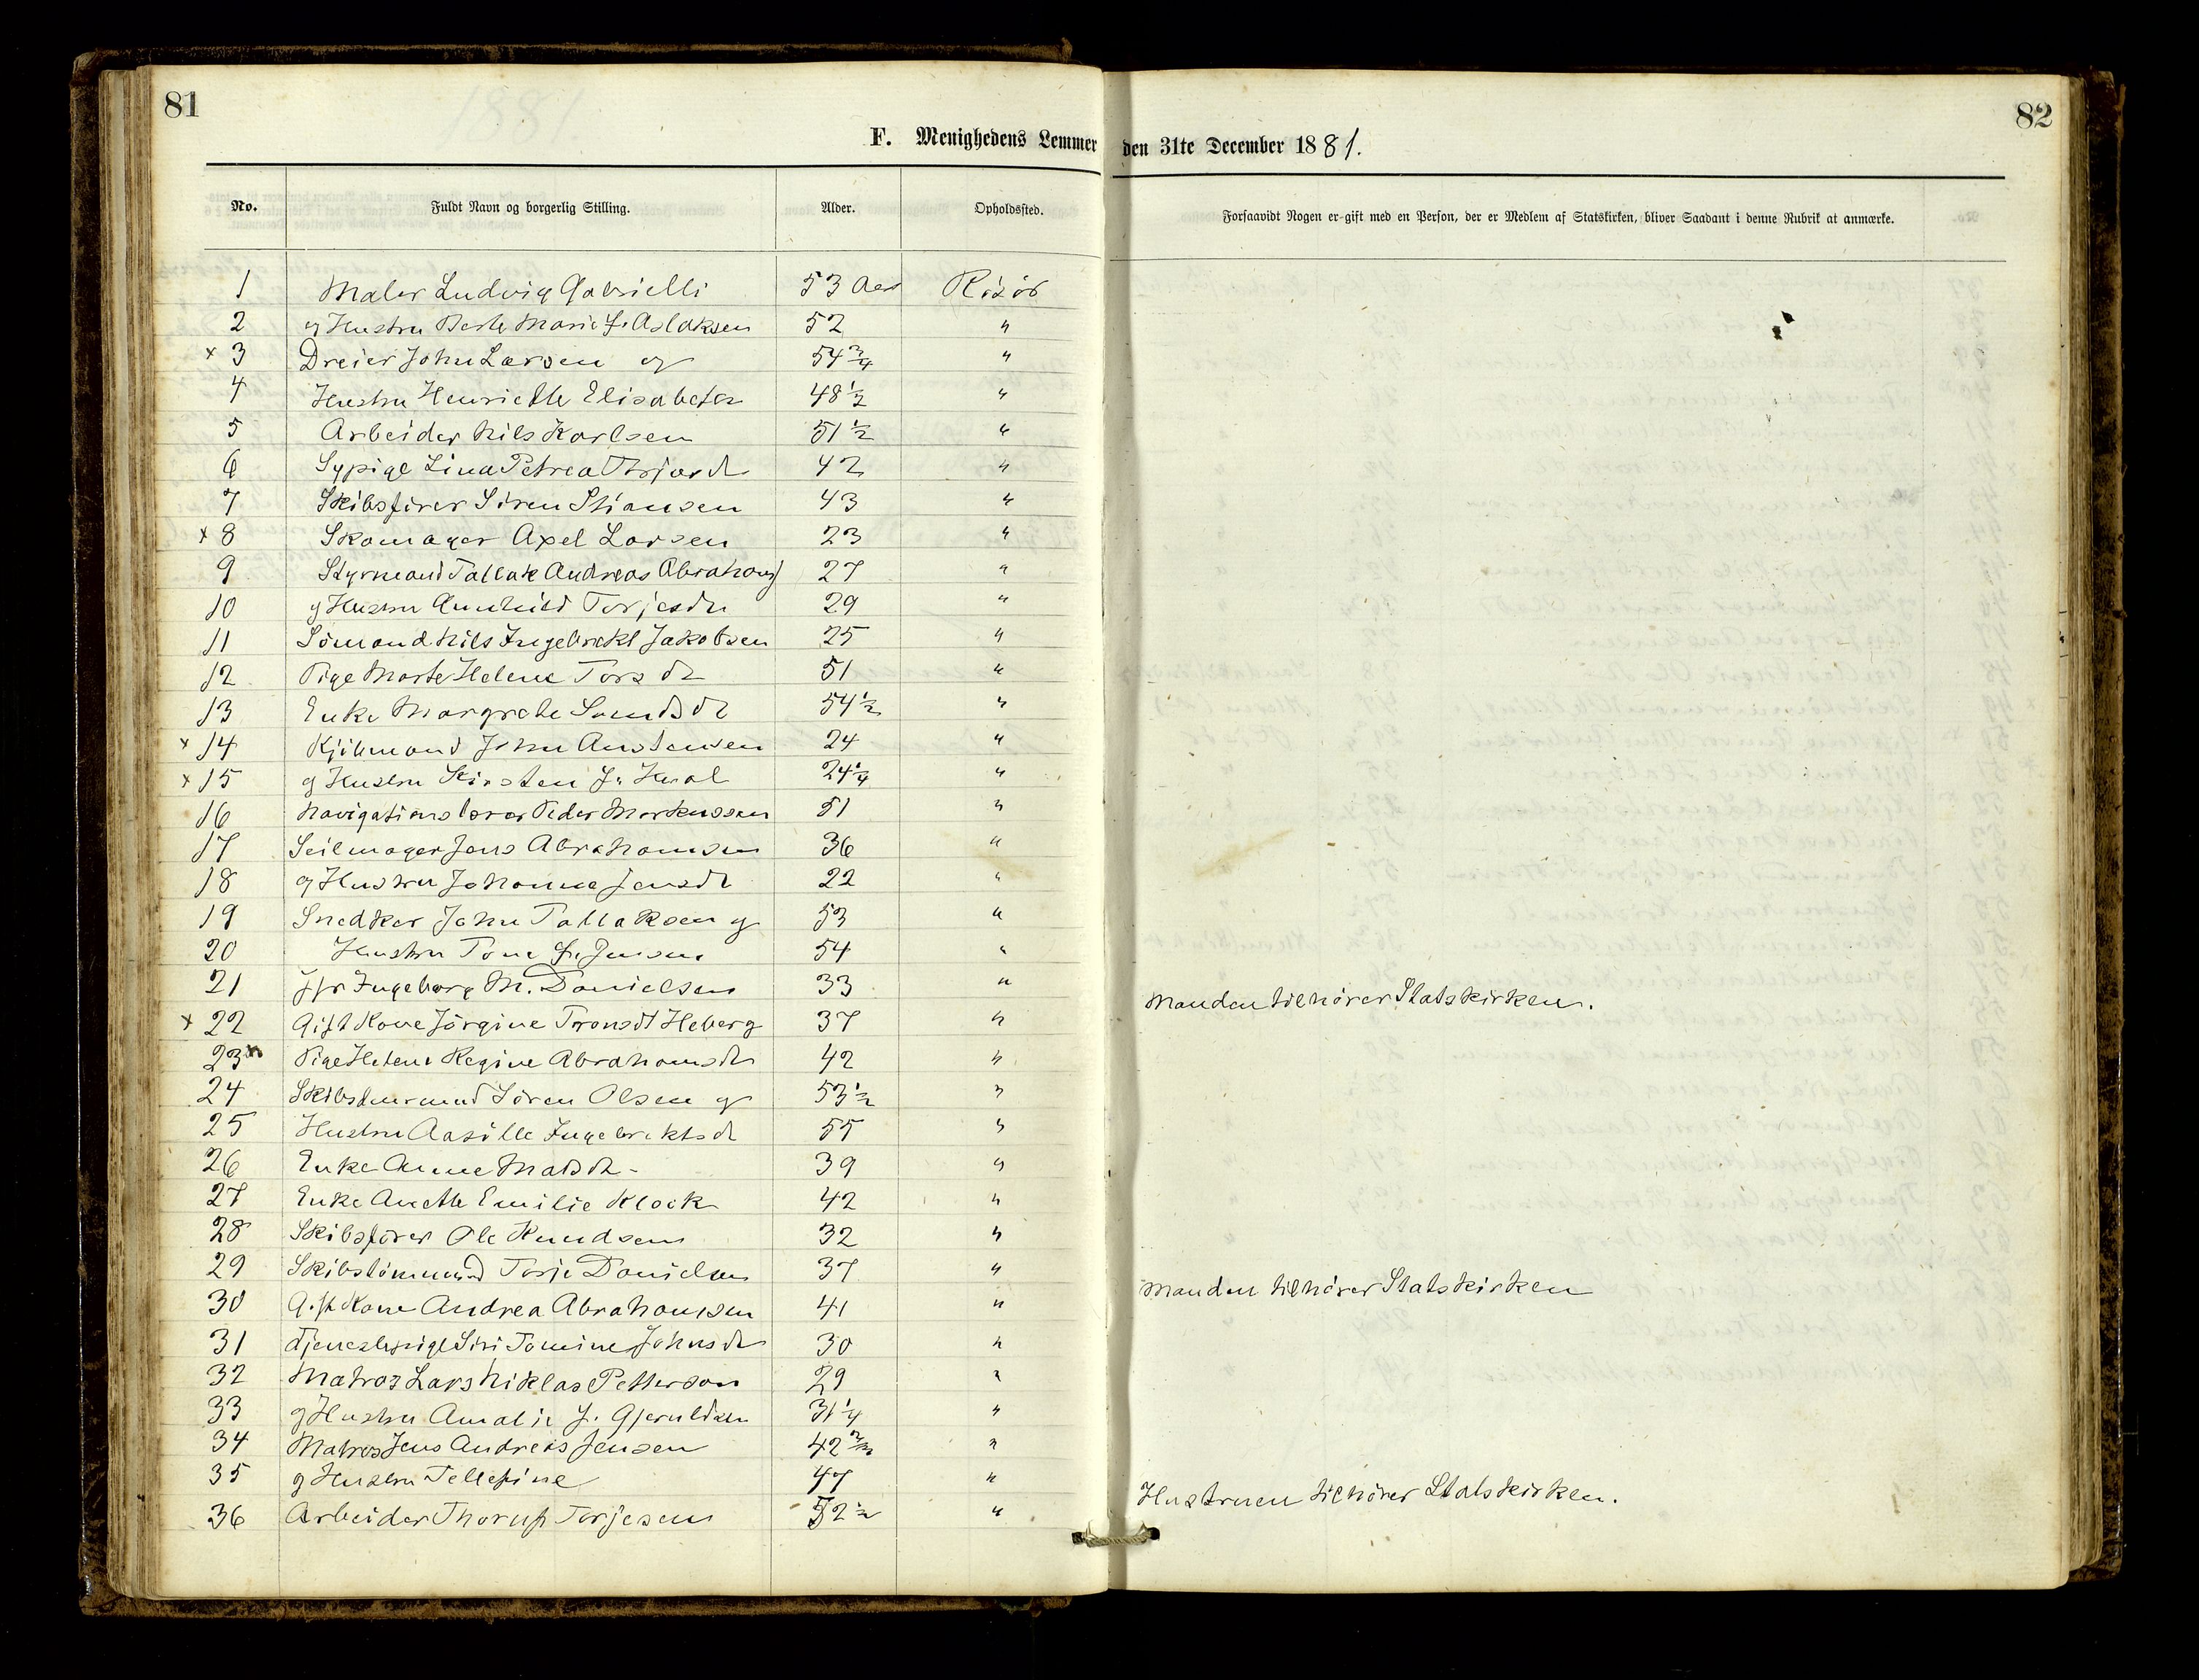 81
1881.
82
F. Menighedens Lemmer den 31te December 1881.
No. Fuldt Navn og borgerlig Stilling. Alder. Opholdssted. Forsaavidt Nogen er gift med en Person, der er Medlem af Statskirken, bliver Saadant i denne Rubrik at anmærke.
1 Maler Ludvig Gabrielli 53 Aar Risør
2 og Hustru Berte Marie f. Aslaksen 52 "
× 3 Dreier John Larsen og 54 3/4 "
4 Hustru Henriette Elisabeth 48 1/2 "
5 Arbeider Nils Karlsen 51 1/2 "
6 Sypige Lina Petrea 42 "
7 Skibsfører Sören Stiansen 43 "
× 8 Skomager Axel Larsen 23 "
9 Styrmand Tallak Andreas Abrahams 27 "
10 og Hustru Gunhild Torjesdtr 29 "
11 Sömand Nils Ingebrekt Jakobsen 25 "
12 Pige Marte Helene Torsdtr 51 "
13 Enke Margrete 54 1/2 "
× 14 John Anstensen 24 "
× 15 og Hustru Kirsten f. 24 1/4 "
16 Navigationslærer Peder Markussen 51 "
17 Seilmager Jens Abrahamsen 36 "
18 og Hustru Johanne Jensdtr 22 "
19 Snedker John Tallaksen og 53 "
20 Hustru Tone f. Jensen 54 "
21 Jfr Ingeborg M. Danielsen 33 "
× 22 Gift Kone Jörgine Tronsdt Heberg 37 " Manden tilhörer Statskirken.
23 Pige Helene Regine Abrahamsdtr 42 "
24 Skibstømmermand Sören Olsen og 53 1/2 "
25 Hustru Aasille Ingebrektsdtr 55 "
26 Enke Anne Madsdtr 39 "
27 Enke Anette Emilie Klock 42 "
28 Skibsfører Ole Knudsen 32 "
29 Skibstömmermand Torje Danielsen 37 "
30 Gift Kone Andrea Abrahamsen 41 " Manden tilhörer Statskirken
31 Tjenestepige Siri Tomine Johnsdtr 30 "
32 Matros Lars Niklas Petterson 29 "
33 og Hustru Amalie f. Gjeruldsen 31 1/4 "
34 Matros Jens Andreas Jensen 42 2/3 "
35 og Hustru Tellefine 47 "
36 Arbeider Thorup Torjesen 52 1/2 " Hustruen tilhörer Statskirken.